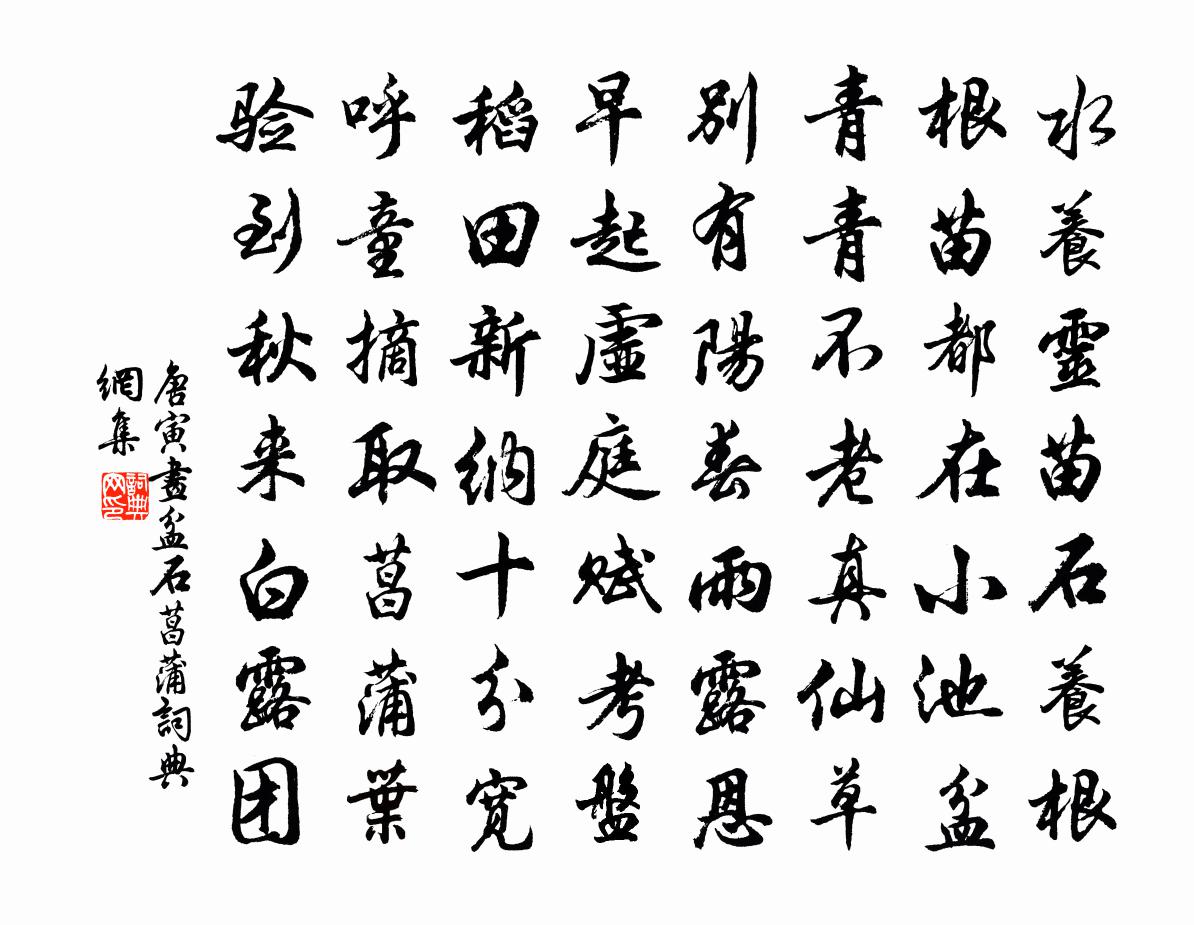 水養靈苗石養根
根苗都在小池盆
青青不老真仙草
别有陽春雨露恩
早起虛庭賦考盤
稻田新納十分寬
呼童摘取菖蒲葉
验到秋来白露团
唐寅畫盆石菖蒲詞典
網集
詞典
网印